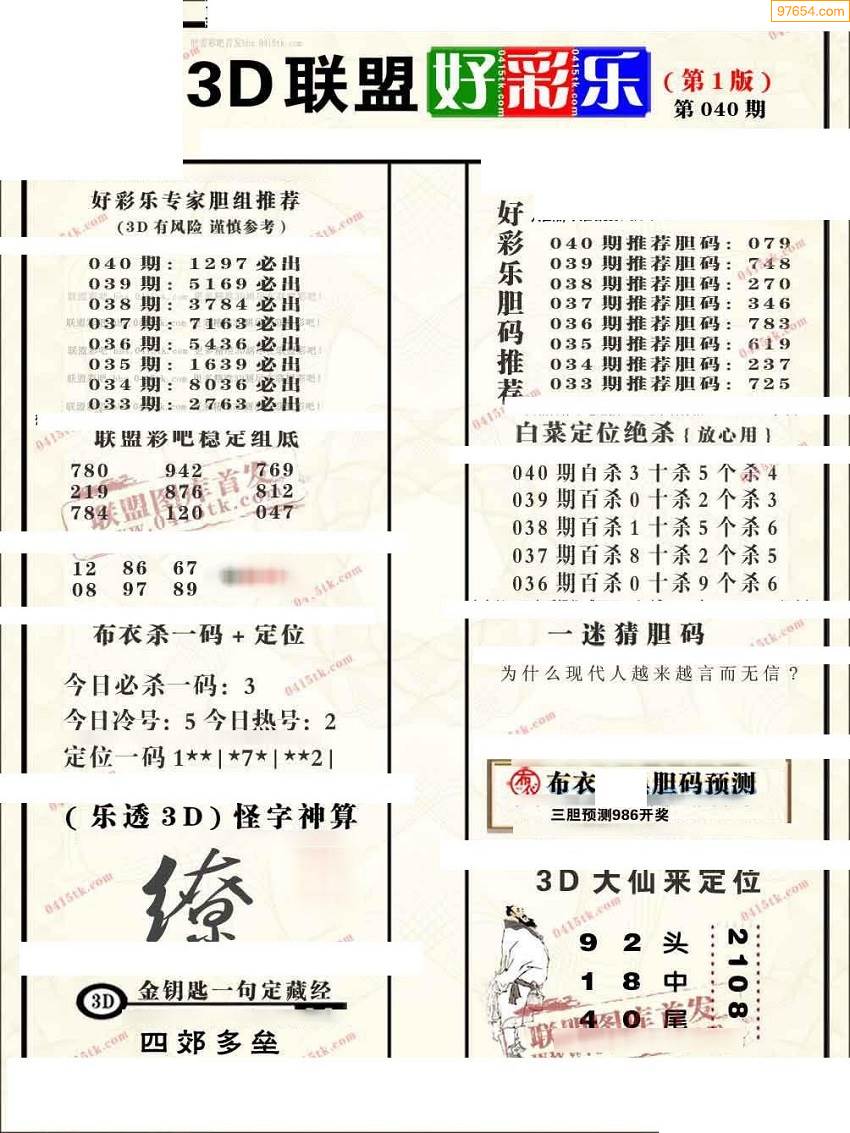 97654.com
3D联盟好彩乐
(第1版)
第040期
好彩乐专家胆组推荐
(3D有风险 谨慎参考)
040期: 1297必出
039期: 5169必出
038期: 3784必出
037期: 7163必出
036期: 5436必出
035期: 1639必出
034期: 8036必出
033期: 2763必出
联盟彩吧稳定组底
780 942 769
219 876 812
784 120 047
12 86 67
08 97 89
布衣杀一码+定位
今日必杀一码: 3
今日冷号: 5 今日热号: 2
定位一码 1**|*7*|**2|
(乐透3D)怪字神算
缭
3D 金钥匙一句定藏经
四郊多垒
好彩乐胆码推荐
040期推荐胆码: 079
039期推荐胆码: 748
038期推荐胆码: 270
037期推荐胆码: 346
036期推荐胆码: 783
035期推荐胆码: 619
034期推荐胆码: 237
033期推荐胆码: 725
白菜定位绝杀{放心用}
040期百杀3十杀5个杀4
039期百杀0十杀2个杀3
038期百杀1十杀5个杀6
037期百杀8十杀2个杀5
036期百杀0十杀9个杀6
一迷猜胆码
为什么现代人越来越言而无信?
布衣 胆码预测
三胆预测986开奖
3D大仙来定位
9 2 头
1 8 中
4 0 尾
2108
联盟图库首发
www.0415tk.com
联盟图库首发
0415tk.com